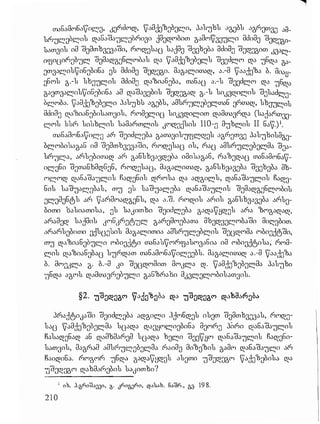 თანამონაწილე, კერძოდ, წამქეზებელი, პასუხს აგებს აგრეთვე ამ-
სრულებლის დანაშაულებრივი ქმედობით გამოწვეული მძიმე შედეგი-
სათვის იმ შემთხვევაში, როდესაც საქმე შეეხება მძიმე შედეგით კვალ-
იფიცირებულ შემადგენლობას და წამქეზებელს შეეძლო და უნდა გა-
ეთვალისწინებინა ეს მძიმე შედეგი. მაგალითად, ა.-მ წააქეზა ბ. მიაყ-
ენოს გ.-ს სხეულის მძიმე დაზიანება, თანაც ა.-ს შეეძლო და უნდა
გაეთვალისწინებინა ამ დაშავების შედეგად გ.-ს სიკვდილის შესაძლე-
ბლობა. წამქეზებელი პასუხს აგებს, ამსრულებელთან ერთად, სხეულის
მძიმე დაზიანებისათვის, რომელიც სიკვდილით დამთავრდა (საქართვე-
ლოს სსრ სისხლის სამართლის კოდექსის 110-ე მუხლის II ნაწ.)¹.
თანამონაწილე არ შეიძლება გათავისუფლდეს აგრეთვე პასუხისმგე-
ბლობისაგან იმ შემთხვევაში, როდესაც ის, რაც ამსრულებელმა შეა-
სრულა, არსებითად არ განსხვავდება იმისაგან, რაზედაც თანამონაწ-
ილენი შეთანხმდნენ, როდესაც, მაგალითად, განსხვავება შეეხება მხ-
ოლოდ დანაშაულის ჩადენის დროსა და ადგილს, დანაშაულის ჩადე-
ნის საშუალებას, თუ ეს საშუალება დანაშაულის შემადგენლობის
ელემენტს არ წარმოადგენს, და ა.შ. როდის არის განსხვავება არსე-
ბითი ხასიათისა, ეს საკითხი შეიძლება გადაწყდეს არა ზოგადად,
არამედ საქმის კონკრეტულ გარემოებათა მხედველობაში მიღებით.
არარსებითი ექსცესის მაგალითია ამსრულებლის შეცდომა ობიექტში,
თუ დაზიანებული ობიექტი თანასწორფასოვანია იმ ობიექტისა, რომ-
ლის დაზიანებაც სურდათ თანამონაწილეებს. მაგალითად ა.-მ წააქეზა
ბ. მოეკლა გ. ბ.-მ კი შეცდომით მოკლა დ. წამქეზებელმა პასუხი
უნდა აგოს დამთავრებული განზრახი მკვლელობისათვის.
§2. უშედეგო წაქეზება და უშედეგო დახმარება
პრაქტიკაში შეიძლება ადგილი ჰქონდეს ისეთ შემთხვევას, როდე-
საც წამქეზებელმა სცადა დაეყოლიებინა მეორე პირი დანაშაულის
ჩასადენად ან დამხმარემ სცადა ხელი შეეწყო დანაშაულის ჩადენი-
სათვის, მაგრამ ამსრულებელმა რაიმე მიზეზის გამო დანაშაული არ
ჩაიდინა. როგორ უნდა გადაწყდეს ასეთი უშედეგო წაქეზებისა და
უშედეგო დახმარების საკითხი?
210